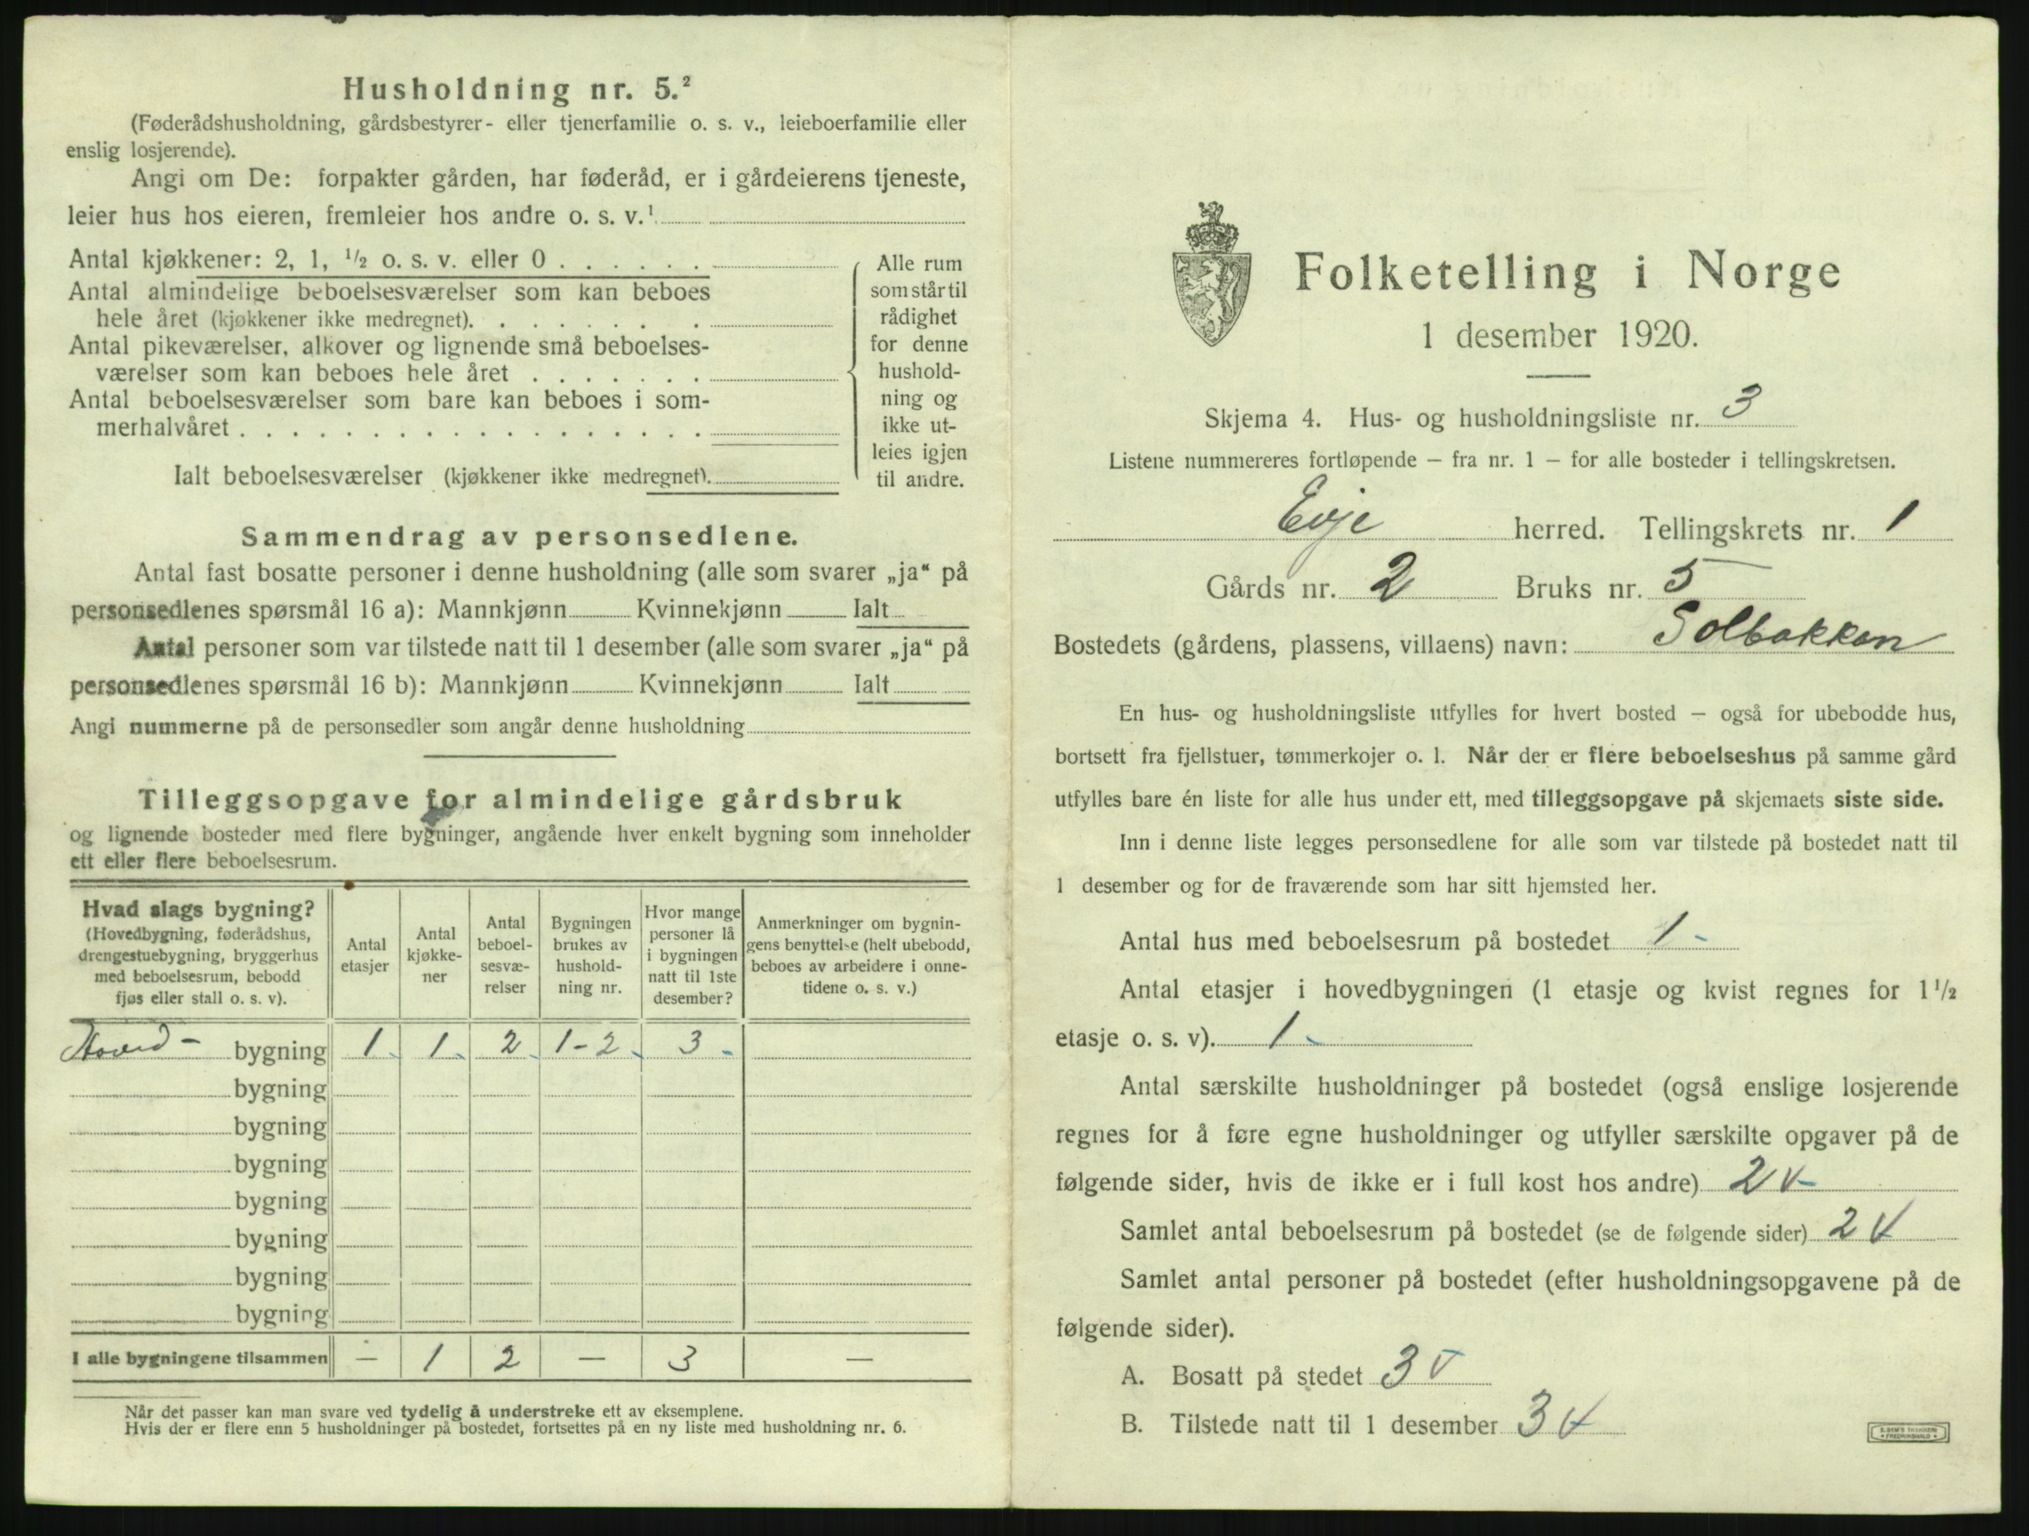 Husholdning nr. 5.²
(Føderådshusholdning, gårdsbestyrer- eller tjenerfamilie o. s. v., leieboerfamilie eller
enslig losjerende).
Angi om De: forpakter gården, har føderåd, er i gårdeierens tjeneste,
leier hus hos eieren, fremleier hos andre o. s. v.¹
Antal kjøkkener: 2, 1, ½ o. s. v. eller 0 . . . . . .
Antal almindelige beboelsesværelser som kan beboes
hele året (kjøkkener ikke medregnet). . . . . . . .
Antal pikeværelser, alkover og lignende små beboelses-
værelser som kan beboes hele året . . . . . . .
Antal beboelsesværelser som bare kan beboes i som-
merhalvåret . . . . . . . . . . . . . . . . . .
Ialt beboelsesværelser (kjøkkener ikke medregnet).
Alle rum
som står til
rådighet
for denne
hushold-
ning og
ikke ut-
leies igjen
til andre.
Sammendrag av personsedlene.
Antal fast bosatte personer i denne husholdning (alle som svarer „ja“ på
personsedlenes spørsmål 16 a): Mannkjønn Kvinnekjønn Ialt
Antal personer som var tilstede natt til 1 desember (alle som svarer „ja“ på
personsedlenes spørsmål 16 b): Mannkjønn Kvinnekjønn Ialt
Angi nummerne på de personsedler som angår denne husholdning
Tilleggsopgave for almindelige gårdsbruk
og lignende bosteder med flere bygninger, angående hver enkelt bygning som inneholder
ett eller flere beboelsesrum.
Hvad slags bygning?
(Hovedbygning, føderådshus,
drengestuebygning, bryggerhus
med beboelsesrum, bebodd
fjøs eller stall o. s. v).
Antal
etasjer
Antal
kjøkke-
ner
Antal
beboel-
sesvæ-
relser
Bygningen
brukes av
hushold-
ning nr.
Hvor mange
personer lå
i bygningen
natt til 1ste
desember?
Anmerkninger om bygnin-
gens benyttelse (helt ubebodd,
beboes av arbeidere i onne-
tidene o. s. v.)
Hoved- bygning 1 1 2 1-2 3
bygning
bygning
bygning
bygning
bygning
bygning
bygning
I alle bygningene tilsammen — 1 2 — 3 —
Når det passer kan man svare ved tydelig å understreke ett av eksemplene.
Hvis der er flere enn 5 husholdninger på bostedet, fortsettes på en ny liste med husholdning nr. 6.
Folketelling i Norge
1 desember 1920.
Skjema 4. Hus- og husholdningsliste nr. 3
Listene nummereres fortløpende – fra nr. 1 – for alle bosteder i tellingskretsen.
Evje herred. Tellingskrets nr. 1
Gårds nr. 2 Bruks nr. 5
Bostedets (gårdens, plassens, villaens) navn: Solbakken
En hus- og husholdningsliste utfylles for hvert bosted – også for ubebodde hus,
bortsett fra fjellstuer, tømmerkojer o. l. Når der er flere beboelseshus på samme gård
utfylles bare én liste for alle hus under ett, med tilleggsopgave på skjemaets siste side.
Inn i denne liste legges personsedlene for alle som var tilstede på bostedet natt til
1 desember og for de fraværende som har sitt hjemsted her.
Antal hus med beboelsesrum på bostedet 1
Antal etasjer i hovedbygningen (1 etasje og kvist regnes for 1½
etasje o. s. v). 1
Antal særskilte husholdninger på bostedet (også enslige losjerende
regnes for å føre egne husholdninger og utfyller særskilte opgaver på de
følgende sider, hvis de ikke er i full kost hos andre) 2
Samlet antal beboelsesrum på bostedet (se de følgende sider) 2
Samlet antal personer på bostedet (efter husholdningsopgavene på de
følgende sider).
A. Bosatt på stedet 3
B. Tilstede natt til 1 desember 3